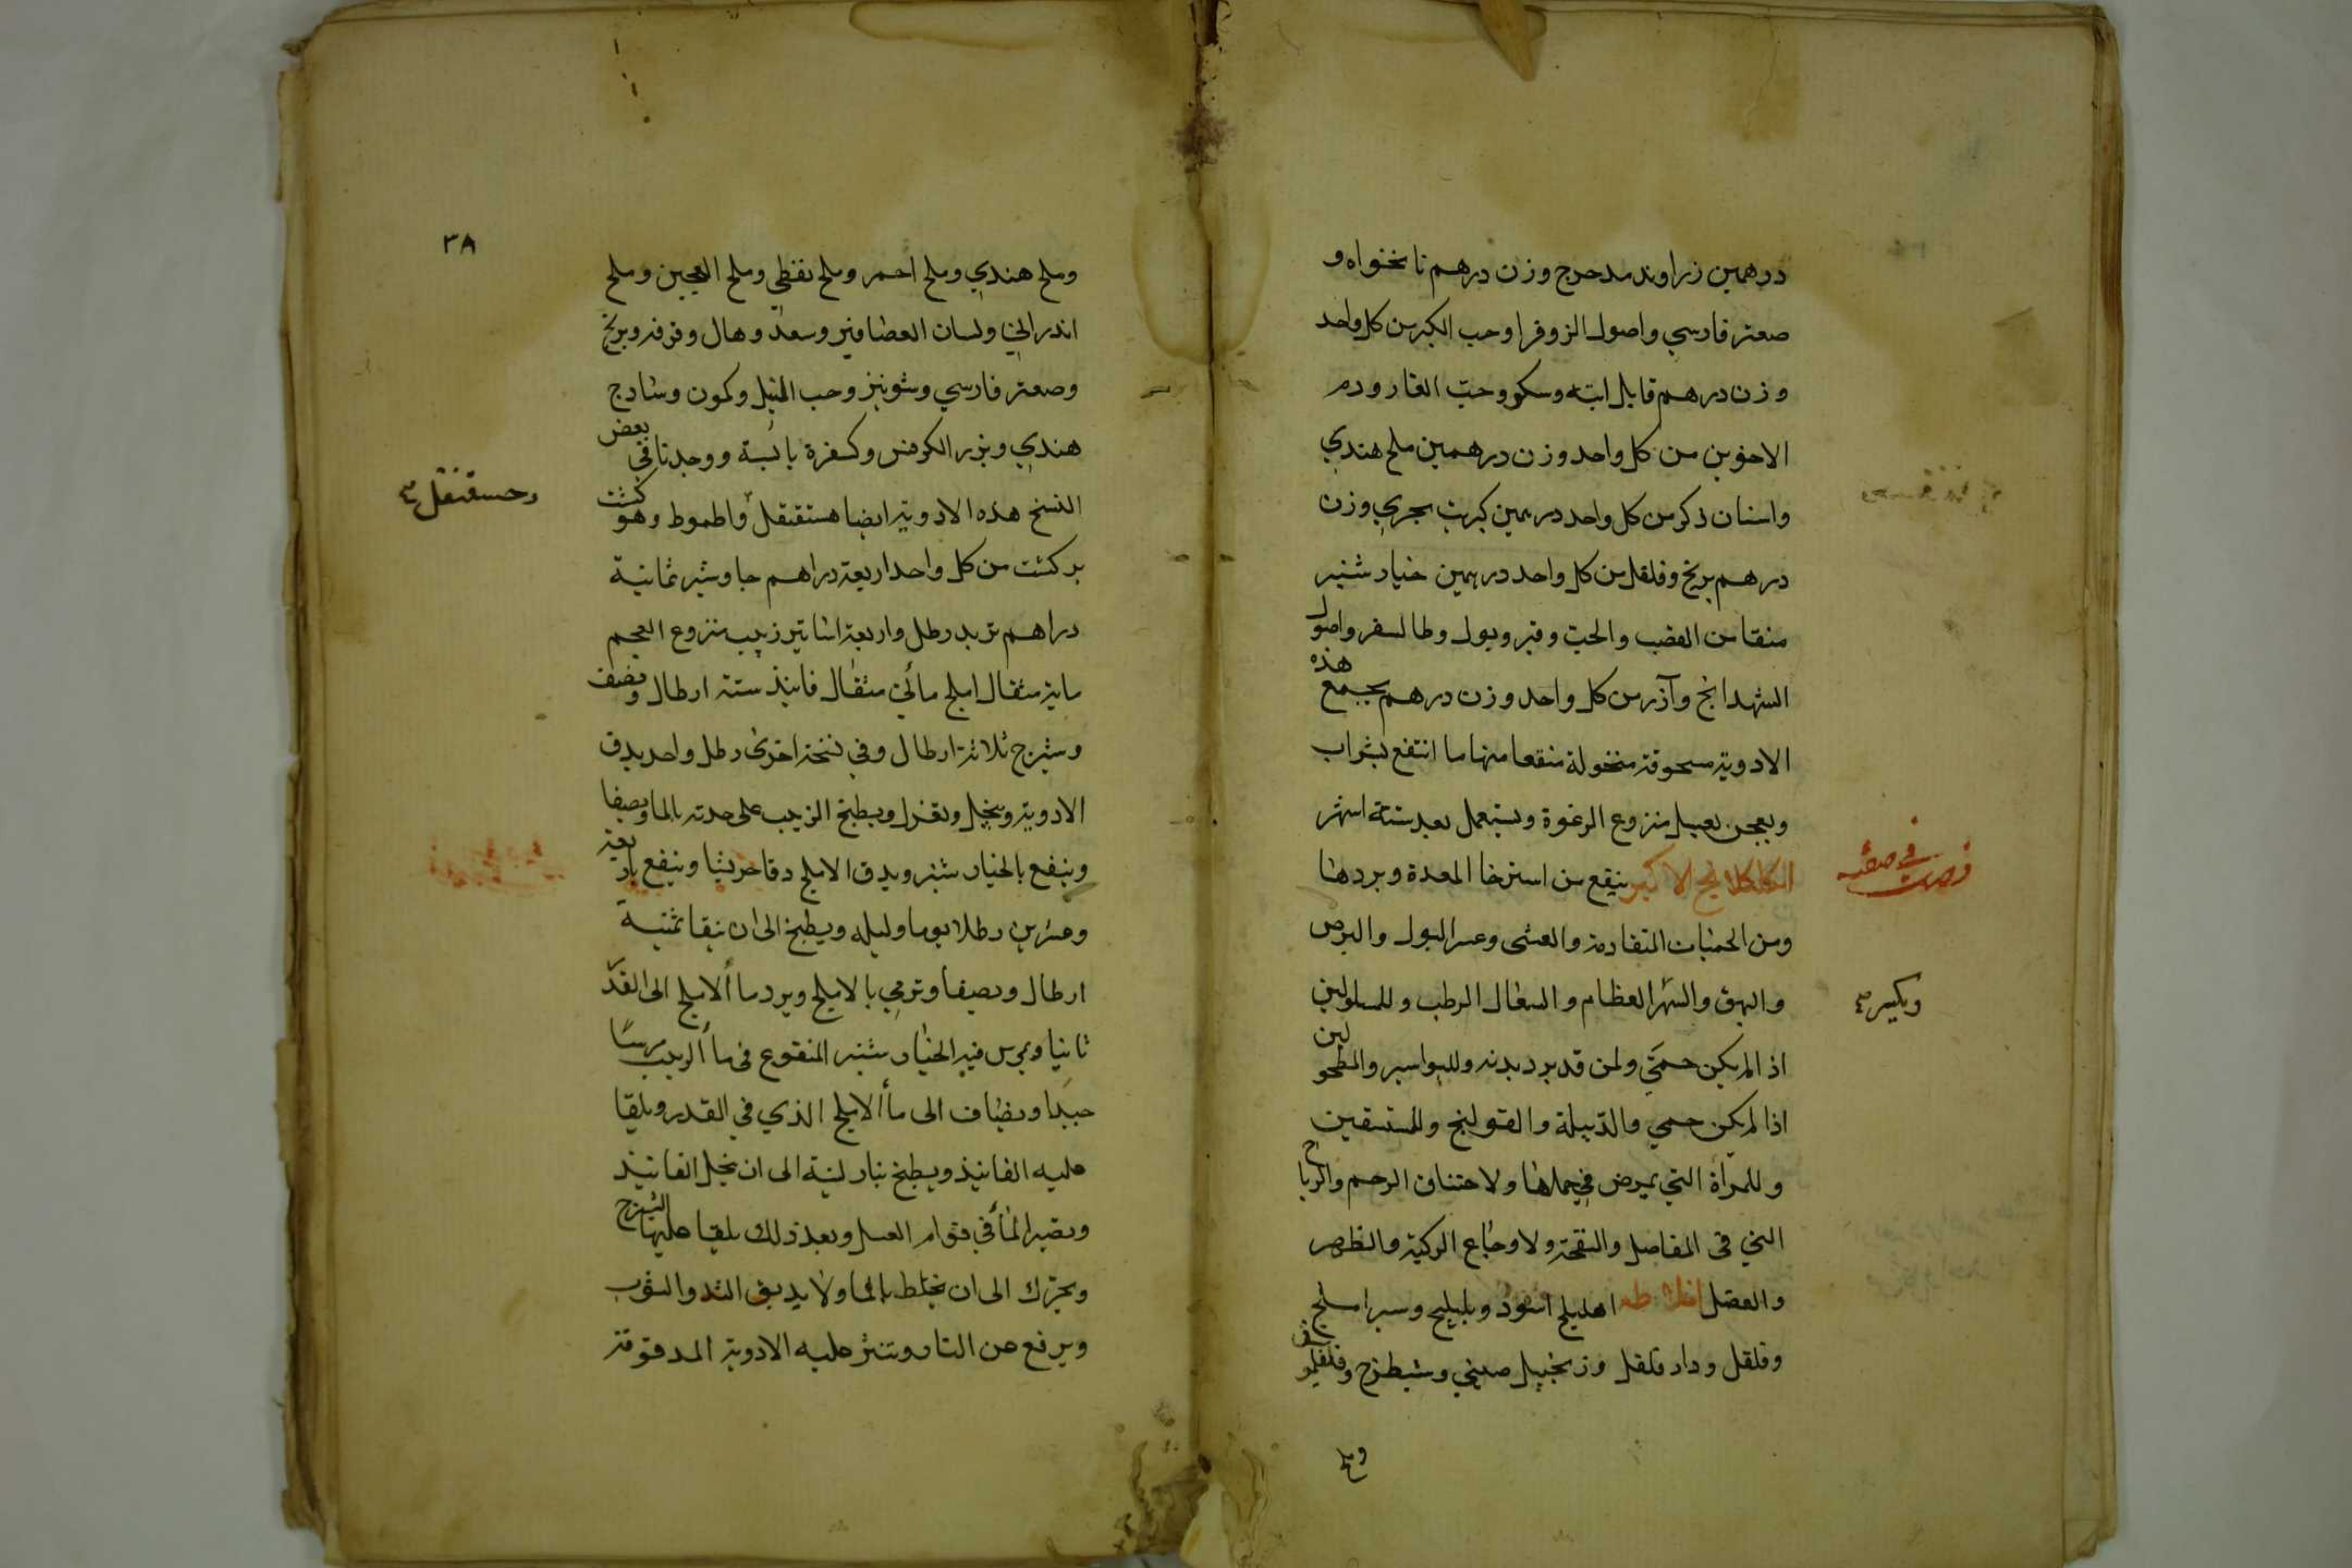 درهمين زراوند مدحرج وزن درهم نانخواه و
صعتر فارسي واصول الزوفرا وحب الكبر من كل واحد
وزن درهم قابل ابته وسكو وحب الغار ودم
الاخوين من كل واحد وزن درهمين ملح هندي
واسنان ذكر من كل واحد درهمين كبريت بحري وزن
درهم برنج وفلفل من كل واحد درهمين خيار شنبر
منقا من القصب والحب وقير وبول وطالسفر واصول
الشهدانج وآذر من كل واحد وزن درهم يجمع هذه
الادوية مسحوقة منخولة منقعا منها ما انتقع بشراب
ويعجن بعسل منزوع الرغوة ويستعمل بعد ستة اشهر
في صفة
الكلكلانج الاكبر ينفع من استرخا المعدة وبردها
ومن الحميات المتقادمة والعشى وعسر البول والبرص
والبهق والسهر العظام والسعال الرطب وللمسلولين
ويكسر
اذا لم يكن حمى ولمن قد برد بدنه وللبواسير والمطحولين
اذا لم يكن حمى والدبيلة والقولنج وللمستسقين
وللمرأة التي يمرض في حملها ولاختناق الرحم والرياح
التي في المفاصل والنقحة ولاوجاع الركبة والظهر
والعضل اخلاطه اهليلج اسود وبليلج وسيراملج
وفلفل ودار فلفل وزنجبيل صيني وشيطرج وفلفلمو
وملح
٣٨
وملح هندي وملح احمر وملح نفطي وملح العجين وملح
اندراني ولسان العصافير وسعد وهال وقرفة وبرنج
وصعتر فارسي وشونيز وحب النيل وكمون وسادج
هندي وبزر الكرفس وكسفرة يابسة ووجدنا في بعض
النسخ هذه الادوية ايضا هستقنقل واطموط وهو كشت
وحسقنقل
بركشت من كل واحد اربعة دراهم جاوشير ثمانية
دراهم تربد رطل واربعة اساتير زبيب منزوع العجم
ماية مثقال املج مأتي مثقال فانيذ ستة ارطال ونصف
وشيرج ثلاثة ارطال وفي نسخة اخرى رطل واحد يدق
الادوية وينخل وتعزل ويطبخ الزبيب على حدته بالما ويصفا
وينفع بالخيار شنبر ويدق الاملج دقا جريشا وينقع باربعة
وعشرين رطلا يوما وليلة ويطبخ الى ان يبقا ثمنية
ارطال ويصفا وترمي بالاملج ويرد مأ الاملج الى القدر
ثانيا ويمرس فيه الخيار شنبر المنقوع في مأ الزبيب مرسا
جيدا ويضاف الى مأ الاملج الذي في القدر ويلقا
عليه الفانيذ ويطبخ بنار لينة الى ان ينحل الفانيذ
ويصير المأ في قوام العسل وبعد ذلك يلقا عليها الشيرج
ويحرك الى ان يختلط بالما ولا يدبق اليد والثوب
ويرفع عن النار وتنثر عليه الادوية المدقوقة